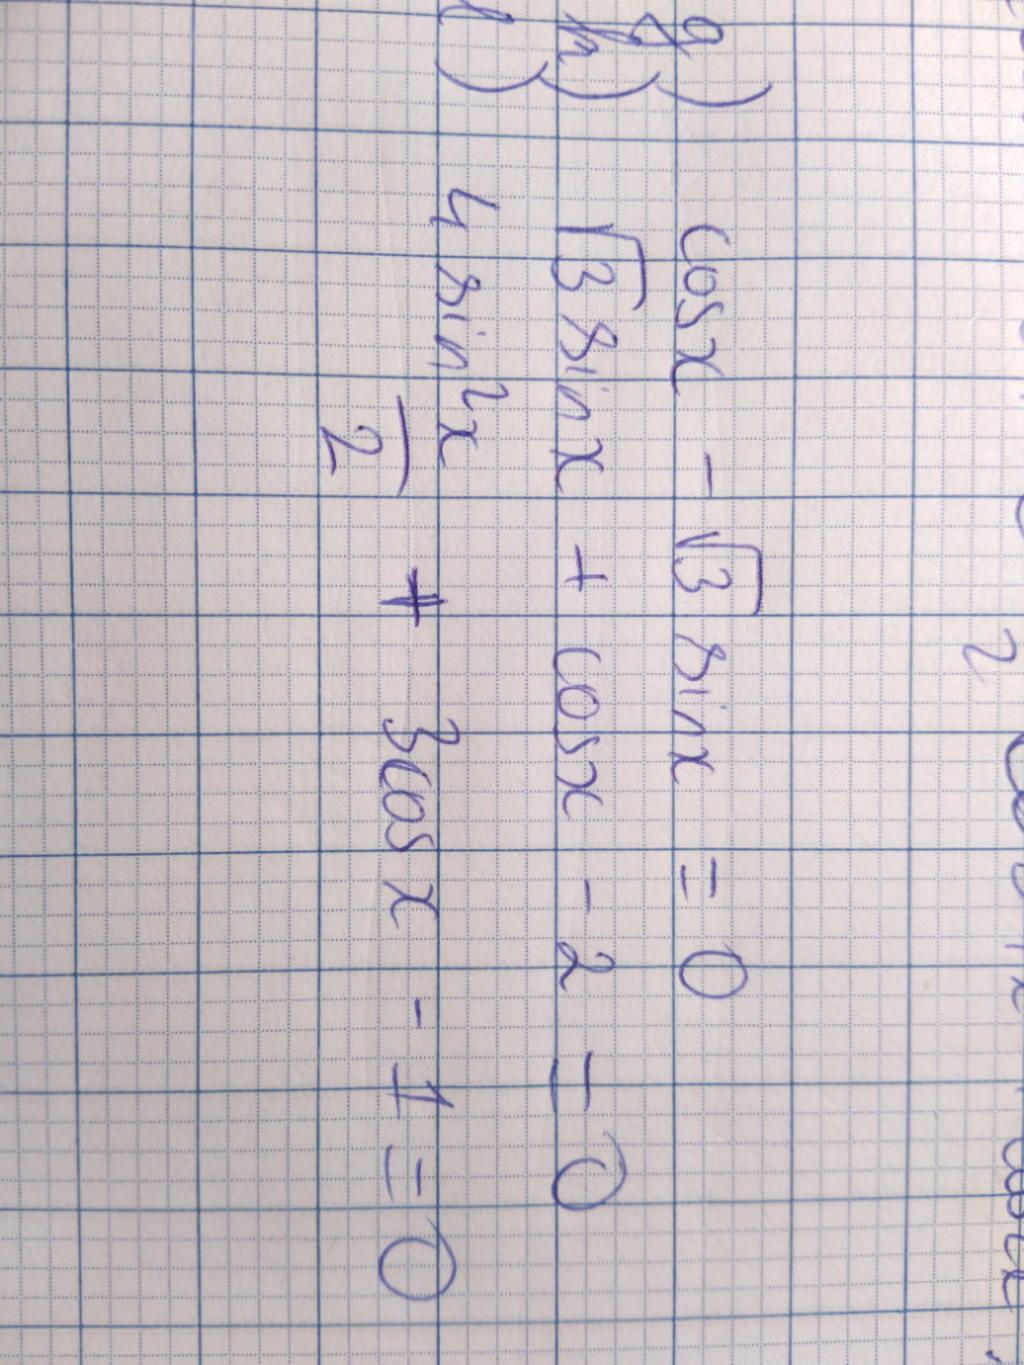 g) cos x - √3 sin x = 0
h) √3 sin x + cos x - 2 = 0
l) 4 sin² x/2 + 3cos x - 1 = 0